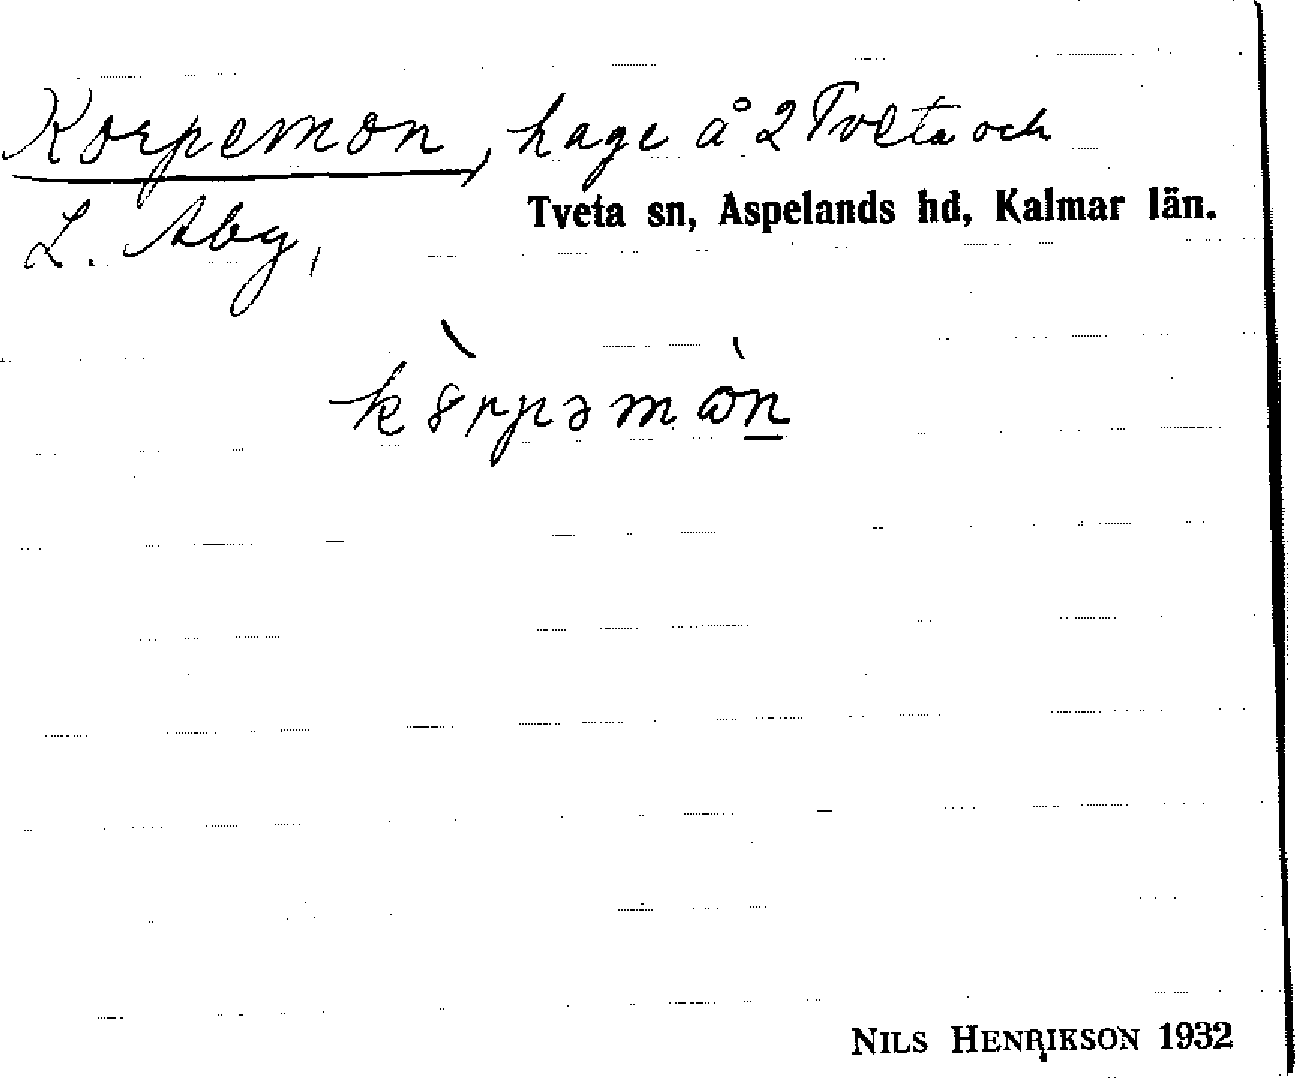 Korpemon, hage å 2 Tveta och
Tveta sn, Aspelands hd, Kalmar län.
L. Aby,
kȣ̀rpəmὼn
NILS HENRIKSON 1932